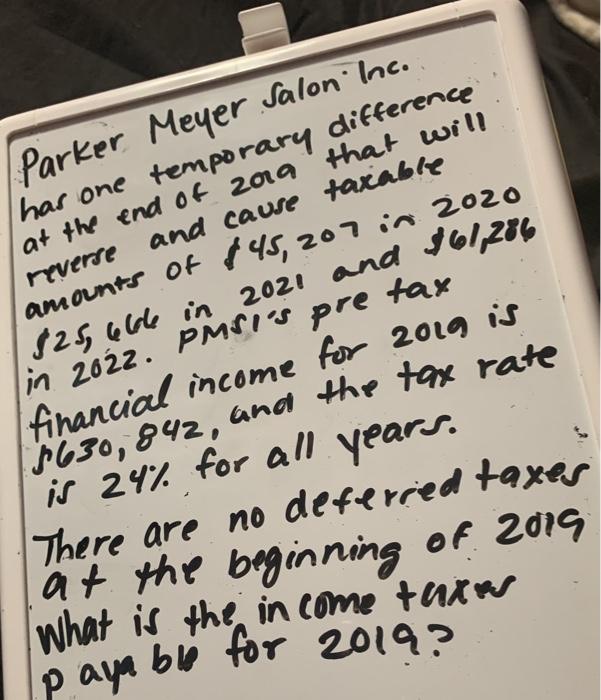 Parker Meyer Salon Inc.
has one temporary difference
at the end of 2019 that will
reverse and cause taxable
amounts of $45,207 in 2020
$25,666 in 2021 and $61,286
in 2022. PMSI's pre tax
financial income for 2019 is
$630,842, and the tax rate
is 24% for all years.
There are no deferred taxes
at the beginning of 2019
What is the income taxes
payable for 2019?